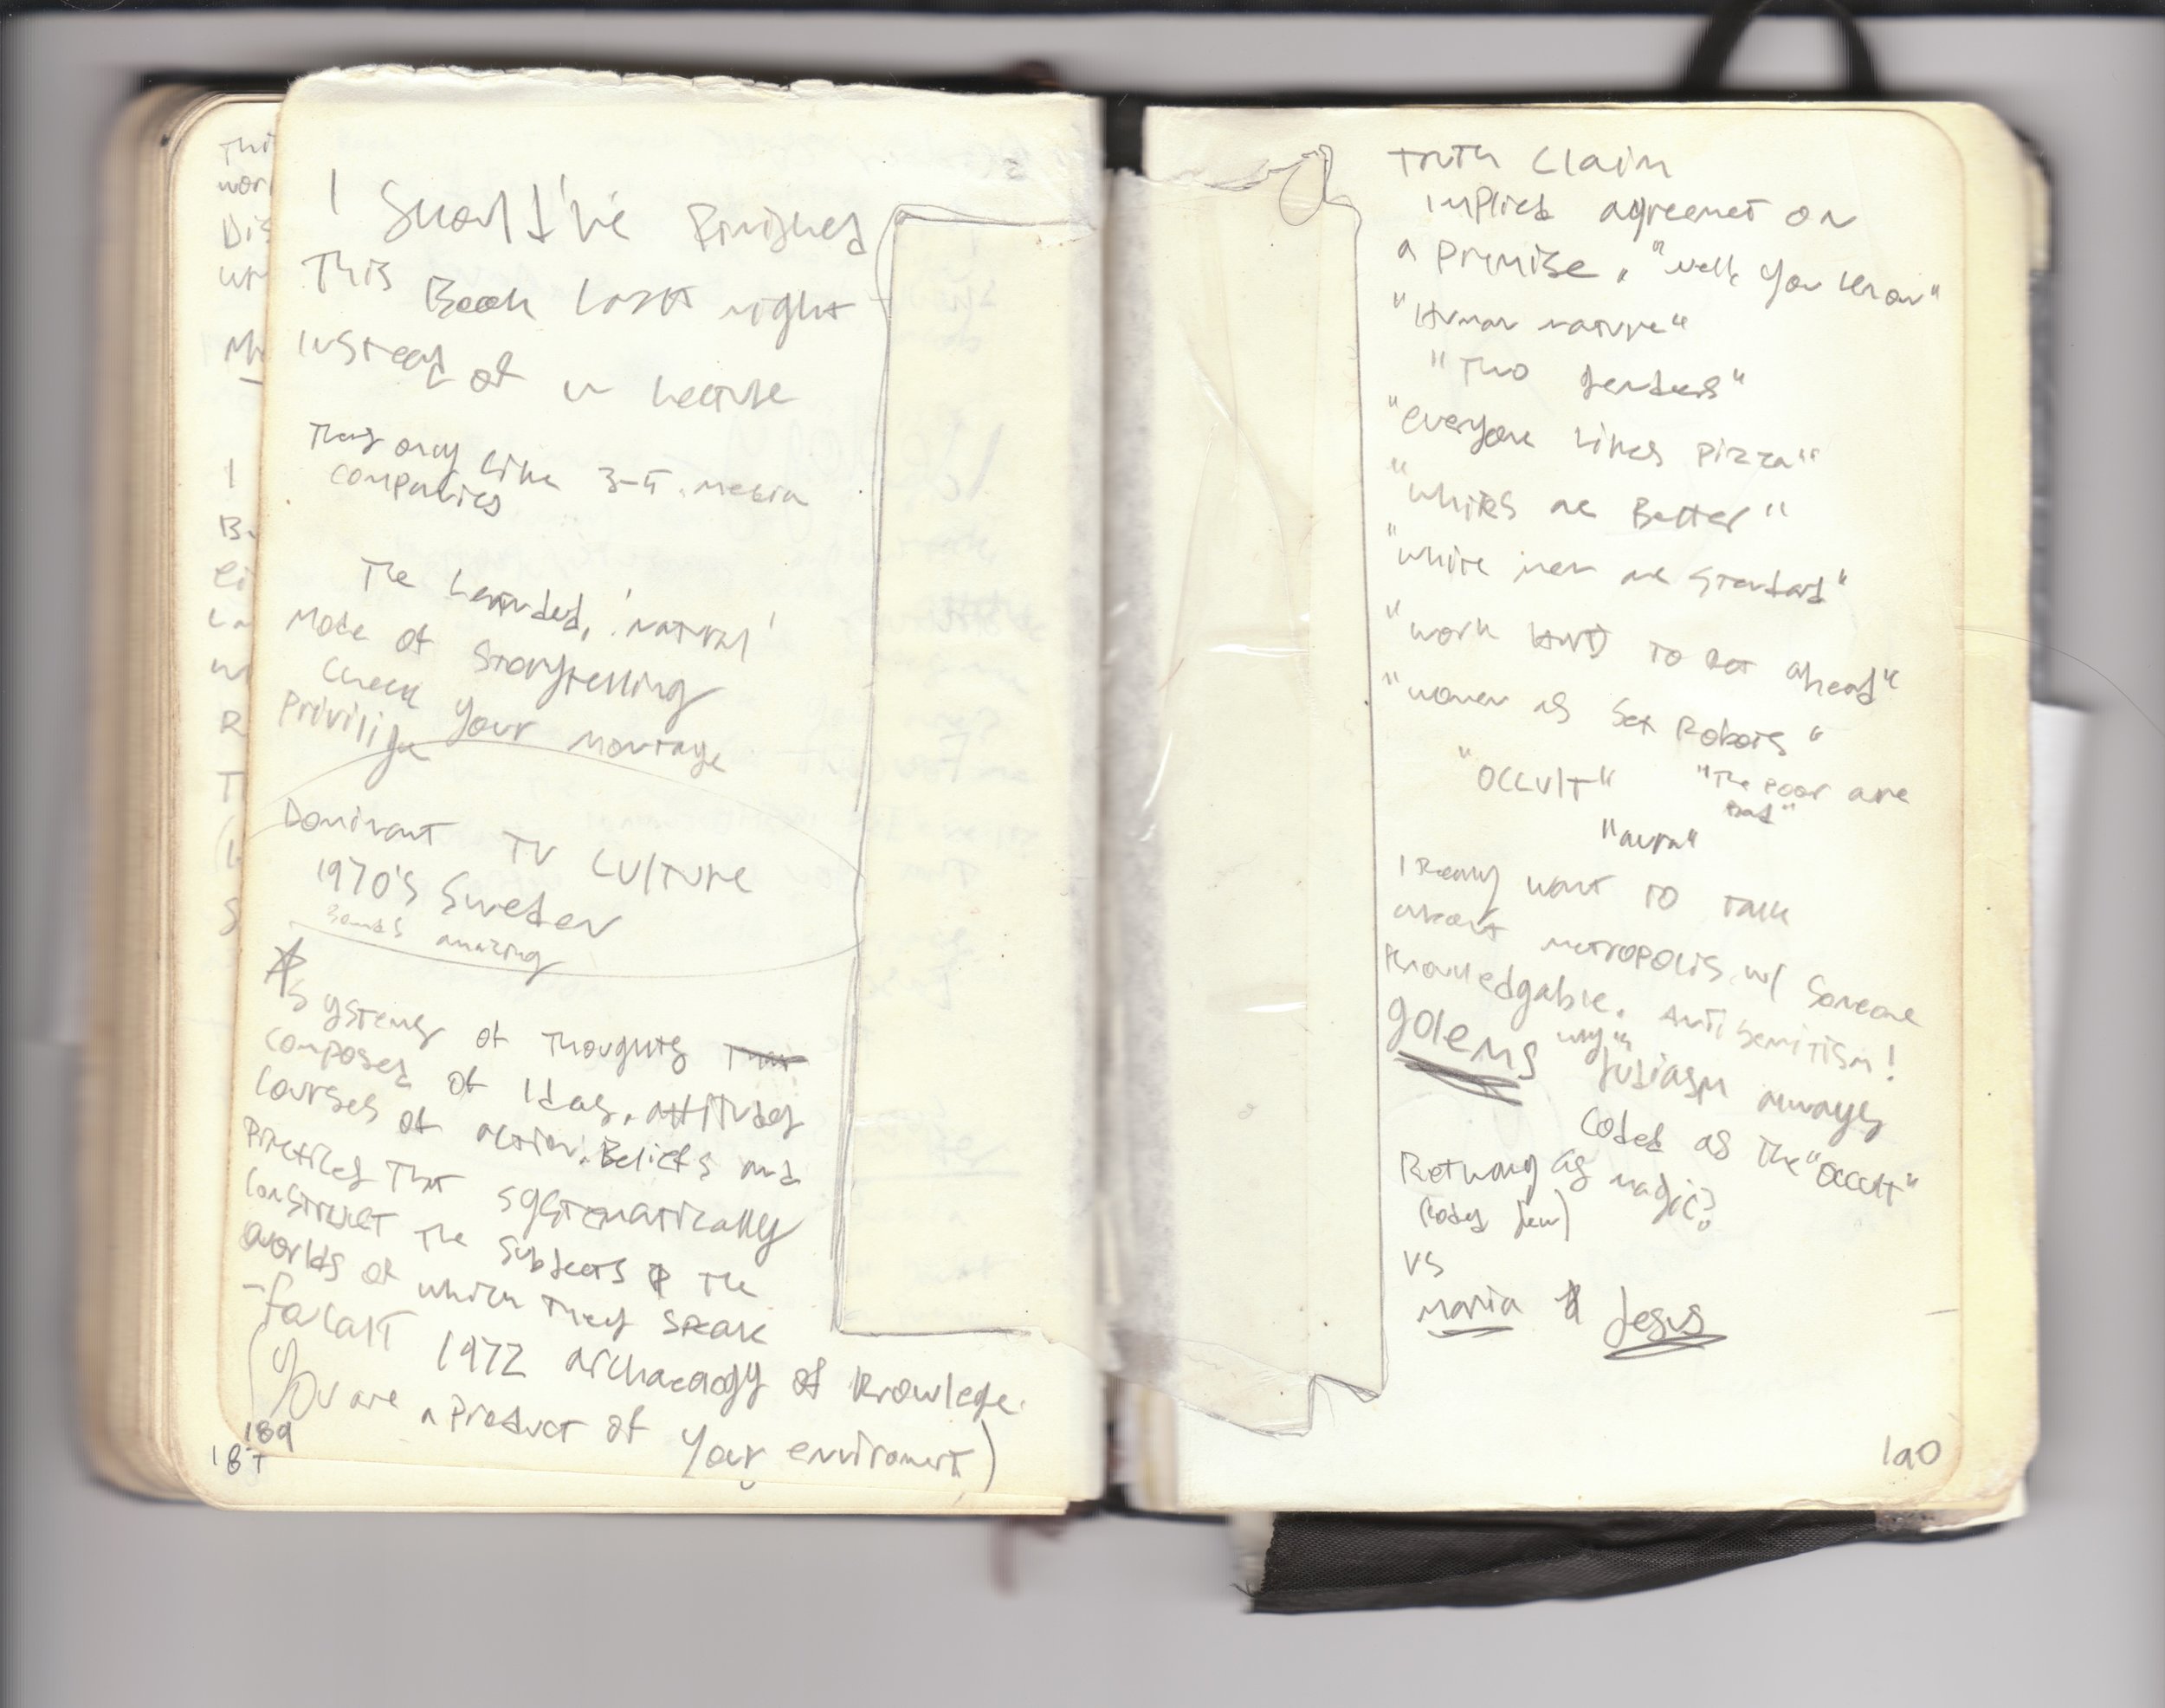 I Should've finished
This Book last night
instead of in lecture
They only like 3-5 media
companies
The Lauded, 'natural'
Mode of Storytelling
Check your montage
Privilige
Dominant TV Culture
1970's Sweden
Sounds amazing
Systems of thoughts
composed of ideas, attitudes
courses of action, Beliefs and
Practices that systematically
construct the subjects & the
worlds of which they speak
- Foucalt 1972 archaeology of knowledge.
(You are a product of your enviroment)
189
187
Thi
wor
Dis
I
R
T
S
Truth Claim
implied agreemet on
a premise. "well, you know"
"Human nature"
"Two genders"
"everyone likes pizza"
"whites are Better"
"white men are standard"
"work HARD to get ahead"
"women as sex Robots"
"OCCULT" "The poor are
bad"
"aura"
I Really want to talk
about metropolis w/ someone
knowledgable. Antisemitism!
golems why is Judiasm always
coded as the "occult"
Rotwang as magic?
(coded jew)
vs
Maria & Jesus
190